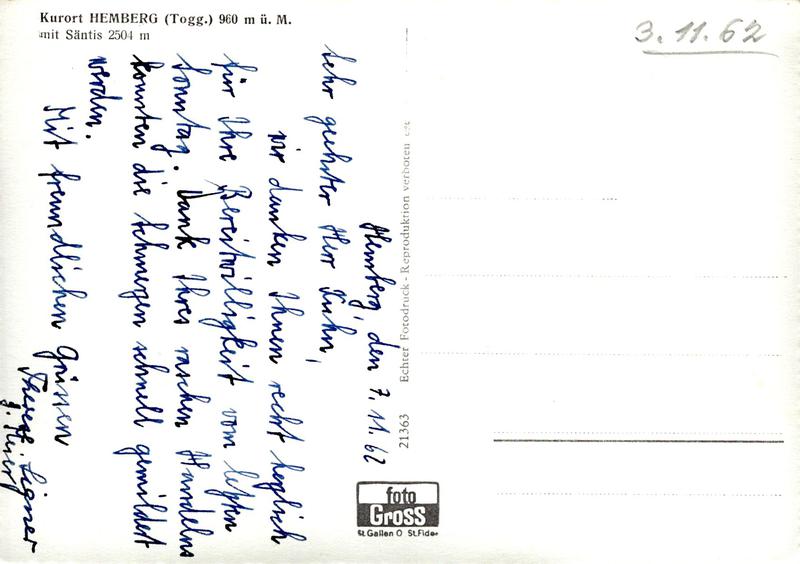 Kurort HEMBERG (Togg.) 960 m ü. M.
mit Säntis 2504 m
3.11.62
Hemberg, den 7.11.62
Sehr geehrter Herr Kuhn,
wir danken Ihnen recht herzlich
für Ihre Bereitwilligkeit vom letzten
Sonntag. Dank Ihres raschen Handelns
konnten die Schmerzen schnell gemildert
werden.
Mit freundlichen Grüssen
Therese Signer
Echter Fotodruck - Reproduktion verboten
21363
foto
Gross
St. Gallen O St. Fiden